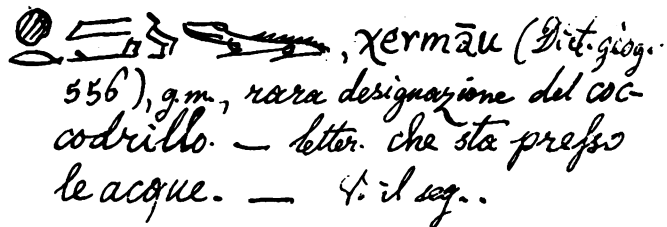 , χermāu (Dict. géog.
556), g.m., rara designazione del coc-
codrillo. — letter. che sta presso
le acque. — V. il seg..